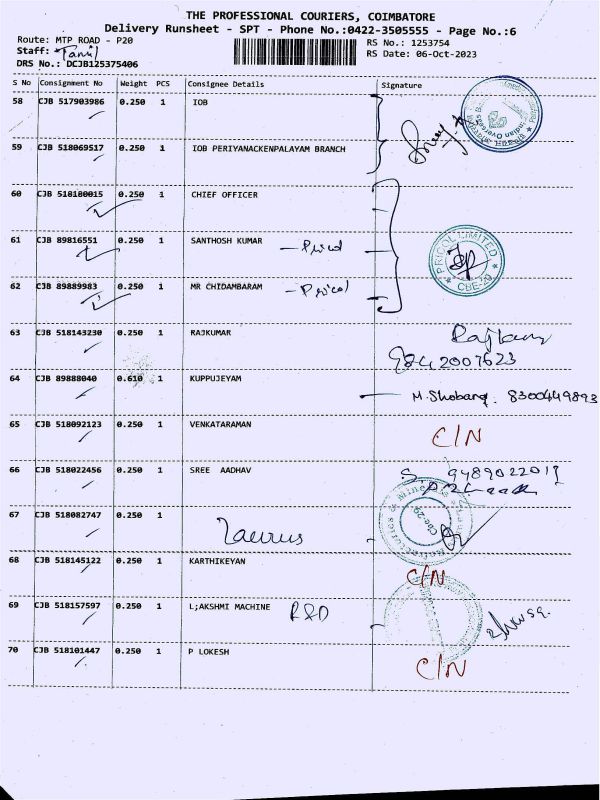 THE PROFESSIONAL COURIERS, COIMBATORE
Delivery Runsheet - SPT - Phone No.:0422-3505555 - Page No.:6
Route: MTP ROAD - P20 RS No.: 1253754
Staff: Tamil RS Date: 06-Oct-2023
DRS No.: DCJB125375406
S No Consignment No Weight PCS Consignee Details Signature
58 CJB 517903986 0.250 1 IOB
59 CJB 518069517 0.250 1 IOB PERIYANACKENPALAYAM BRANCH
60 CJB 518180015 0.250 1 CHIEF OFFICER
61 CJB 89816551 0.250 1 SANTHOSH KUMAR - Pricol
PRICOL LIMITED CBE-20
62 CJB 89889983 0.250 1 MR CHIDAMBARAM - Pricol
63 CJB 518143230 0.250 1 RAJKUMAR Rajkum
9842007623
64 CJB 89888040 0.610 1 KUPPUJEYAM M. Shobana. 8300449893
65 CJB 518092123 0.250 1 VENKATARAMAN C/N
66 CJB 518022456 0.250 1 SREE AADHAV 9489022019
67 CJB 518082747 0.250 1 Taurus
68 CJB 518145122 0.250 1 KARTHIKEYAN C/N
69 CJB 518157597 0.250 1 L;AKSHMI MACHINE R&D
70 CJB 518101447 0.250 1 P LOKESH C/N